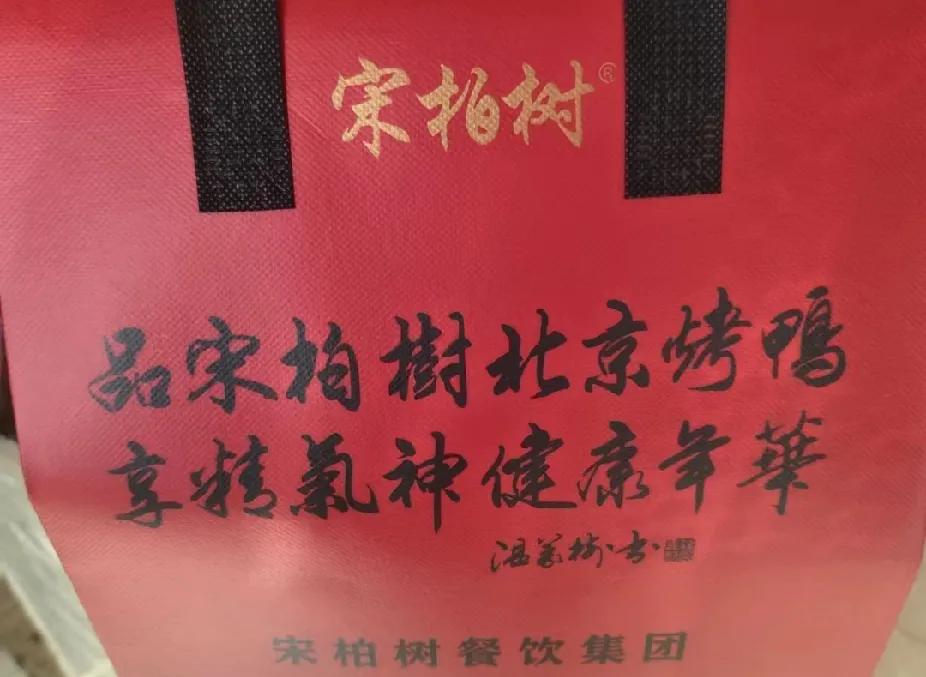 宋柏树®
品宋柏樹北京烤鴨
享精氣神健康年華
宋柏树餐饮集团